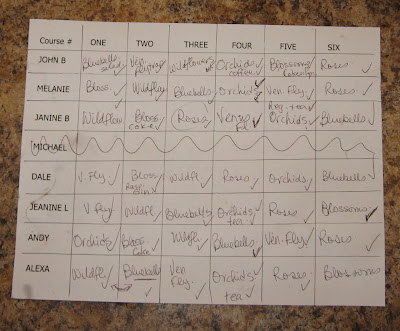 Course # ONE TWO THREE FOUR FIVE SIX
JOHN B Bluebells salad Ven. Wildflowers Orchids coffee Blossoms Roses
MELANIE Bloss. Wildflwr Bluebells Orchids Ven. Fly. Roses
JANINE B Wildflow Bloss cake Roses Venus Fl Reg. tea Orchids Bluebells
MICHAEL
DALE V. Fly Bloss Wildfl Roses Orchids Bluebells
JEANINE L V Fly Wildfl Bluebells Orchids tea Roses Blossoms
ANDY Orchids Bloss Cake Wildfl Bluebells Ven. Fly. Roses
ALEXA Wildfl. Bluebells Ven Fly. Orchids tea Roses Blossoms